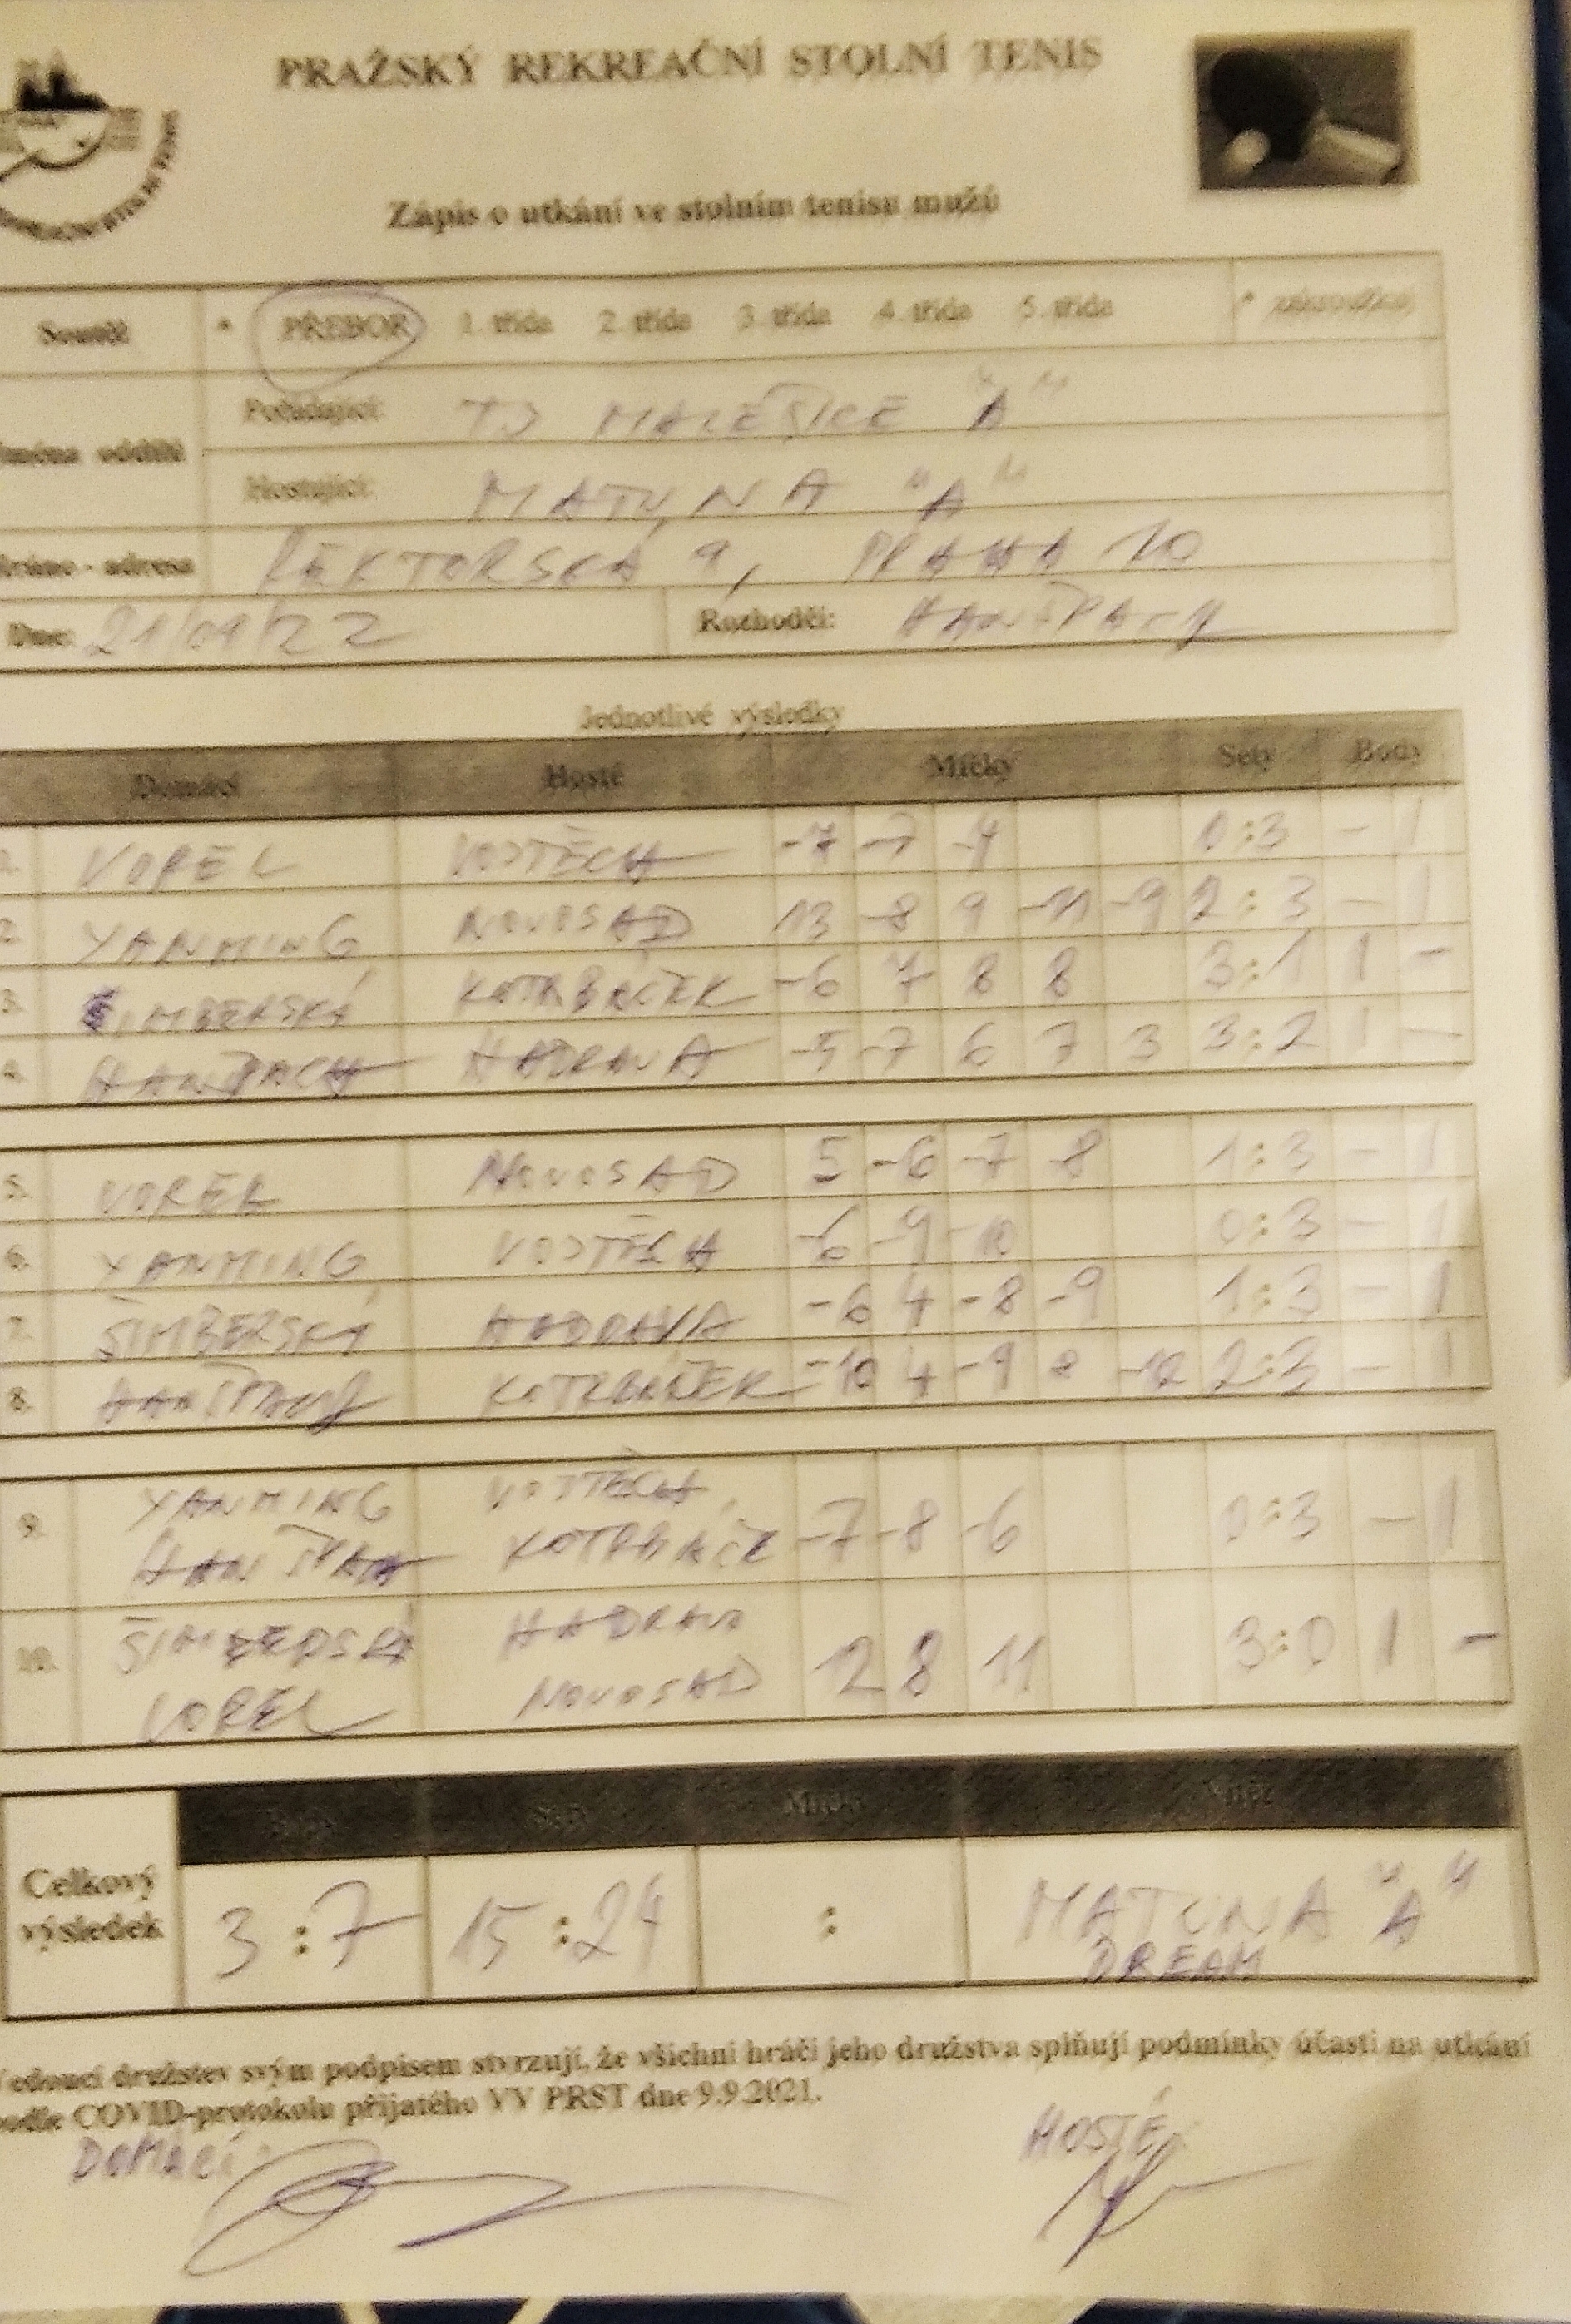 PRAŽSKÝ REKREAČNÍ STOLNÍ TENIS
Zápis o utkání ve stolním tenisu mužů
Soutěž * PŘEBOR 1. třída 2. třída 3. třída 4. třída 5. třída * zakroužkuj
Jména oddílů
Pořádající: TJ MALEŠICE "A"
Hostující: MATUNA "A"
Hráno - adresa REKTORSKÁ 9, PRAHA 10
Dne: 21/09/22 Rozhodčí: HANŠPACH
Jednotlivé výsledky
Domácí Hosté Míčky Sety Body
1. VOREL VOJTĚCH -7 -7 -4 0:3 - 1
2. YANMING NOVOSAD 13 -8 9 -11 -9 2:3 - 1
3. ŠIMBERSKÁ KOTRBÁČEK -6 7 8 8 3:1 1 -
4. HANŠPACH HADRAVA -5 -7 6 7 3 3:2 1 -
5. VOREL NOVOSAD 5 -6 -7 -8 1:3 - 1
6. YANMING VOJTĚCH -6 -9 -10 0:3 - 1
7. ŠIMBERSKÁ HADRAVA -6 4 -8 -9 1:3 - 1
8. HANŠPACH KOTRBÁČEK -10 4 -9 8 -12 2:3 - 1
9. YANMING VOJTĚCH
HANŠPACH KOTRBÁČEK -7 -8 -6 0:3 - 1
10. ŠIMBERSKÁ HADRAVA
VOREL NOVOSAD 12 8 11 3:0 1 -
Míčky
Celkový výsledek 3:7 15:24 : MATUNA "A"
DREAM
Vedoucí družstev svým podpisem stvrzují, že všichni hráči jeho družstva splňují podmínky účasti na utkání
podle COVID-protokolu přijatého VV PRST dne 9.9.2021.
DOMÁCÍ: HOSTÉ